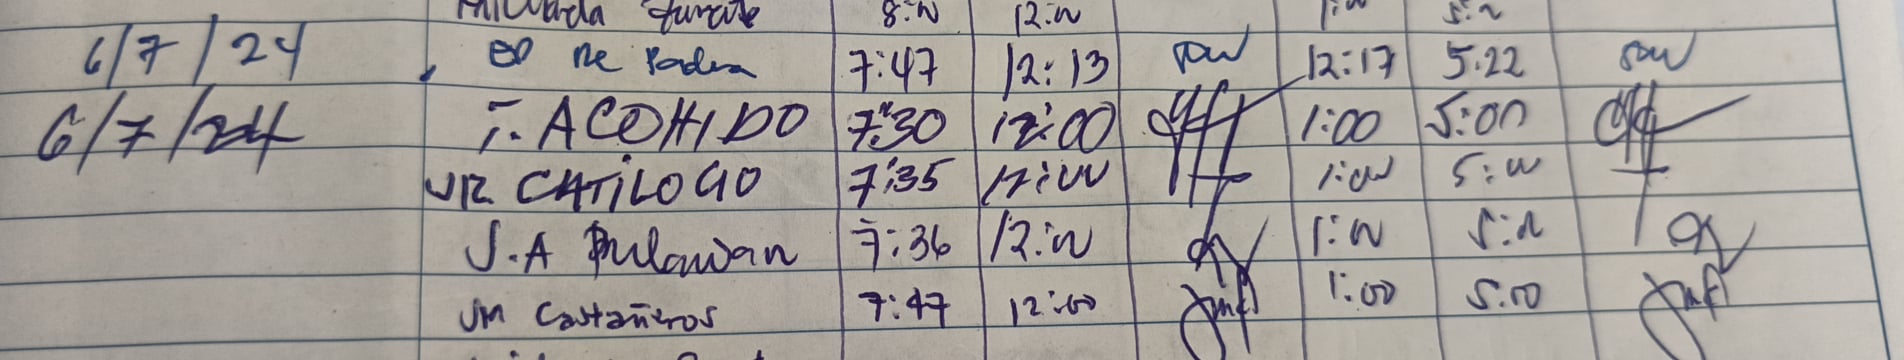 8:00 12:00 1:00 5:00
6/7/24 ED De Padua 7:47 12:13 12:17 5:22
6/7/24 T. ACOHIDO 7:30 12:00 1:00 5:00
JR. CATILOGO 7:35 12:00 1:00 5:00
J.A Bulawan 7:36 12:00 1:00 5:00
JM Castañeros 7:47 12:00 1:00 5:00